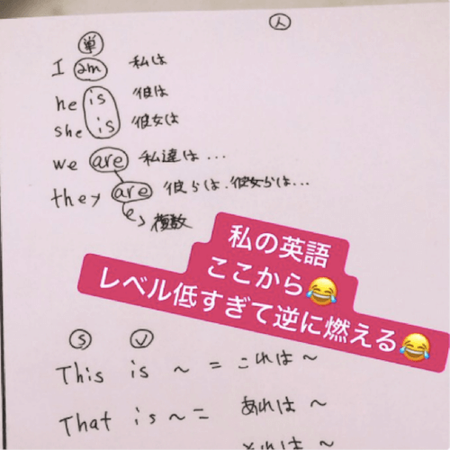 人
単
I am 私は
he is 彼は
she is 彼女は
we are 私達は...
they are 彼らは、彼女らは...
複数
私の英語
ここから😂
レベル低すぎて逆に燃える😂
S V
This is ~ = これは~
That is ~ = あれは~
それは~